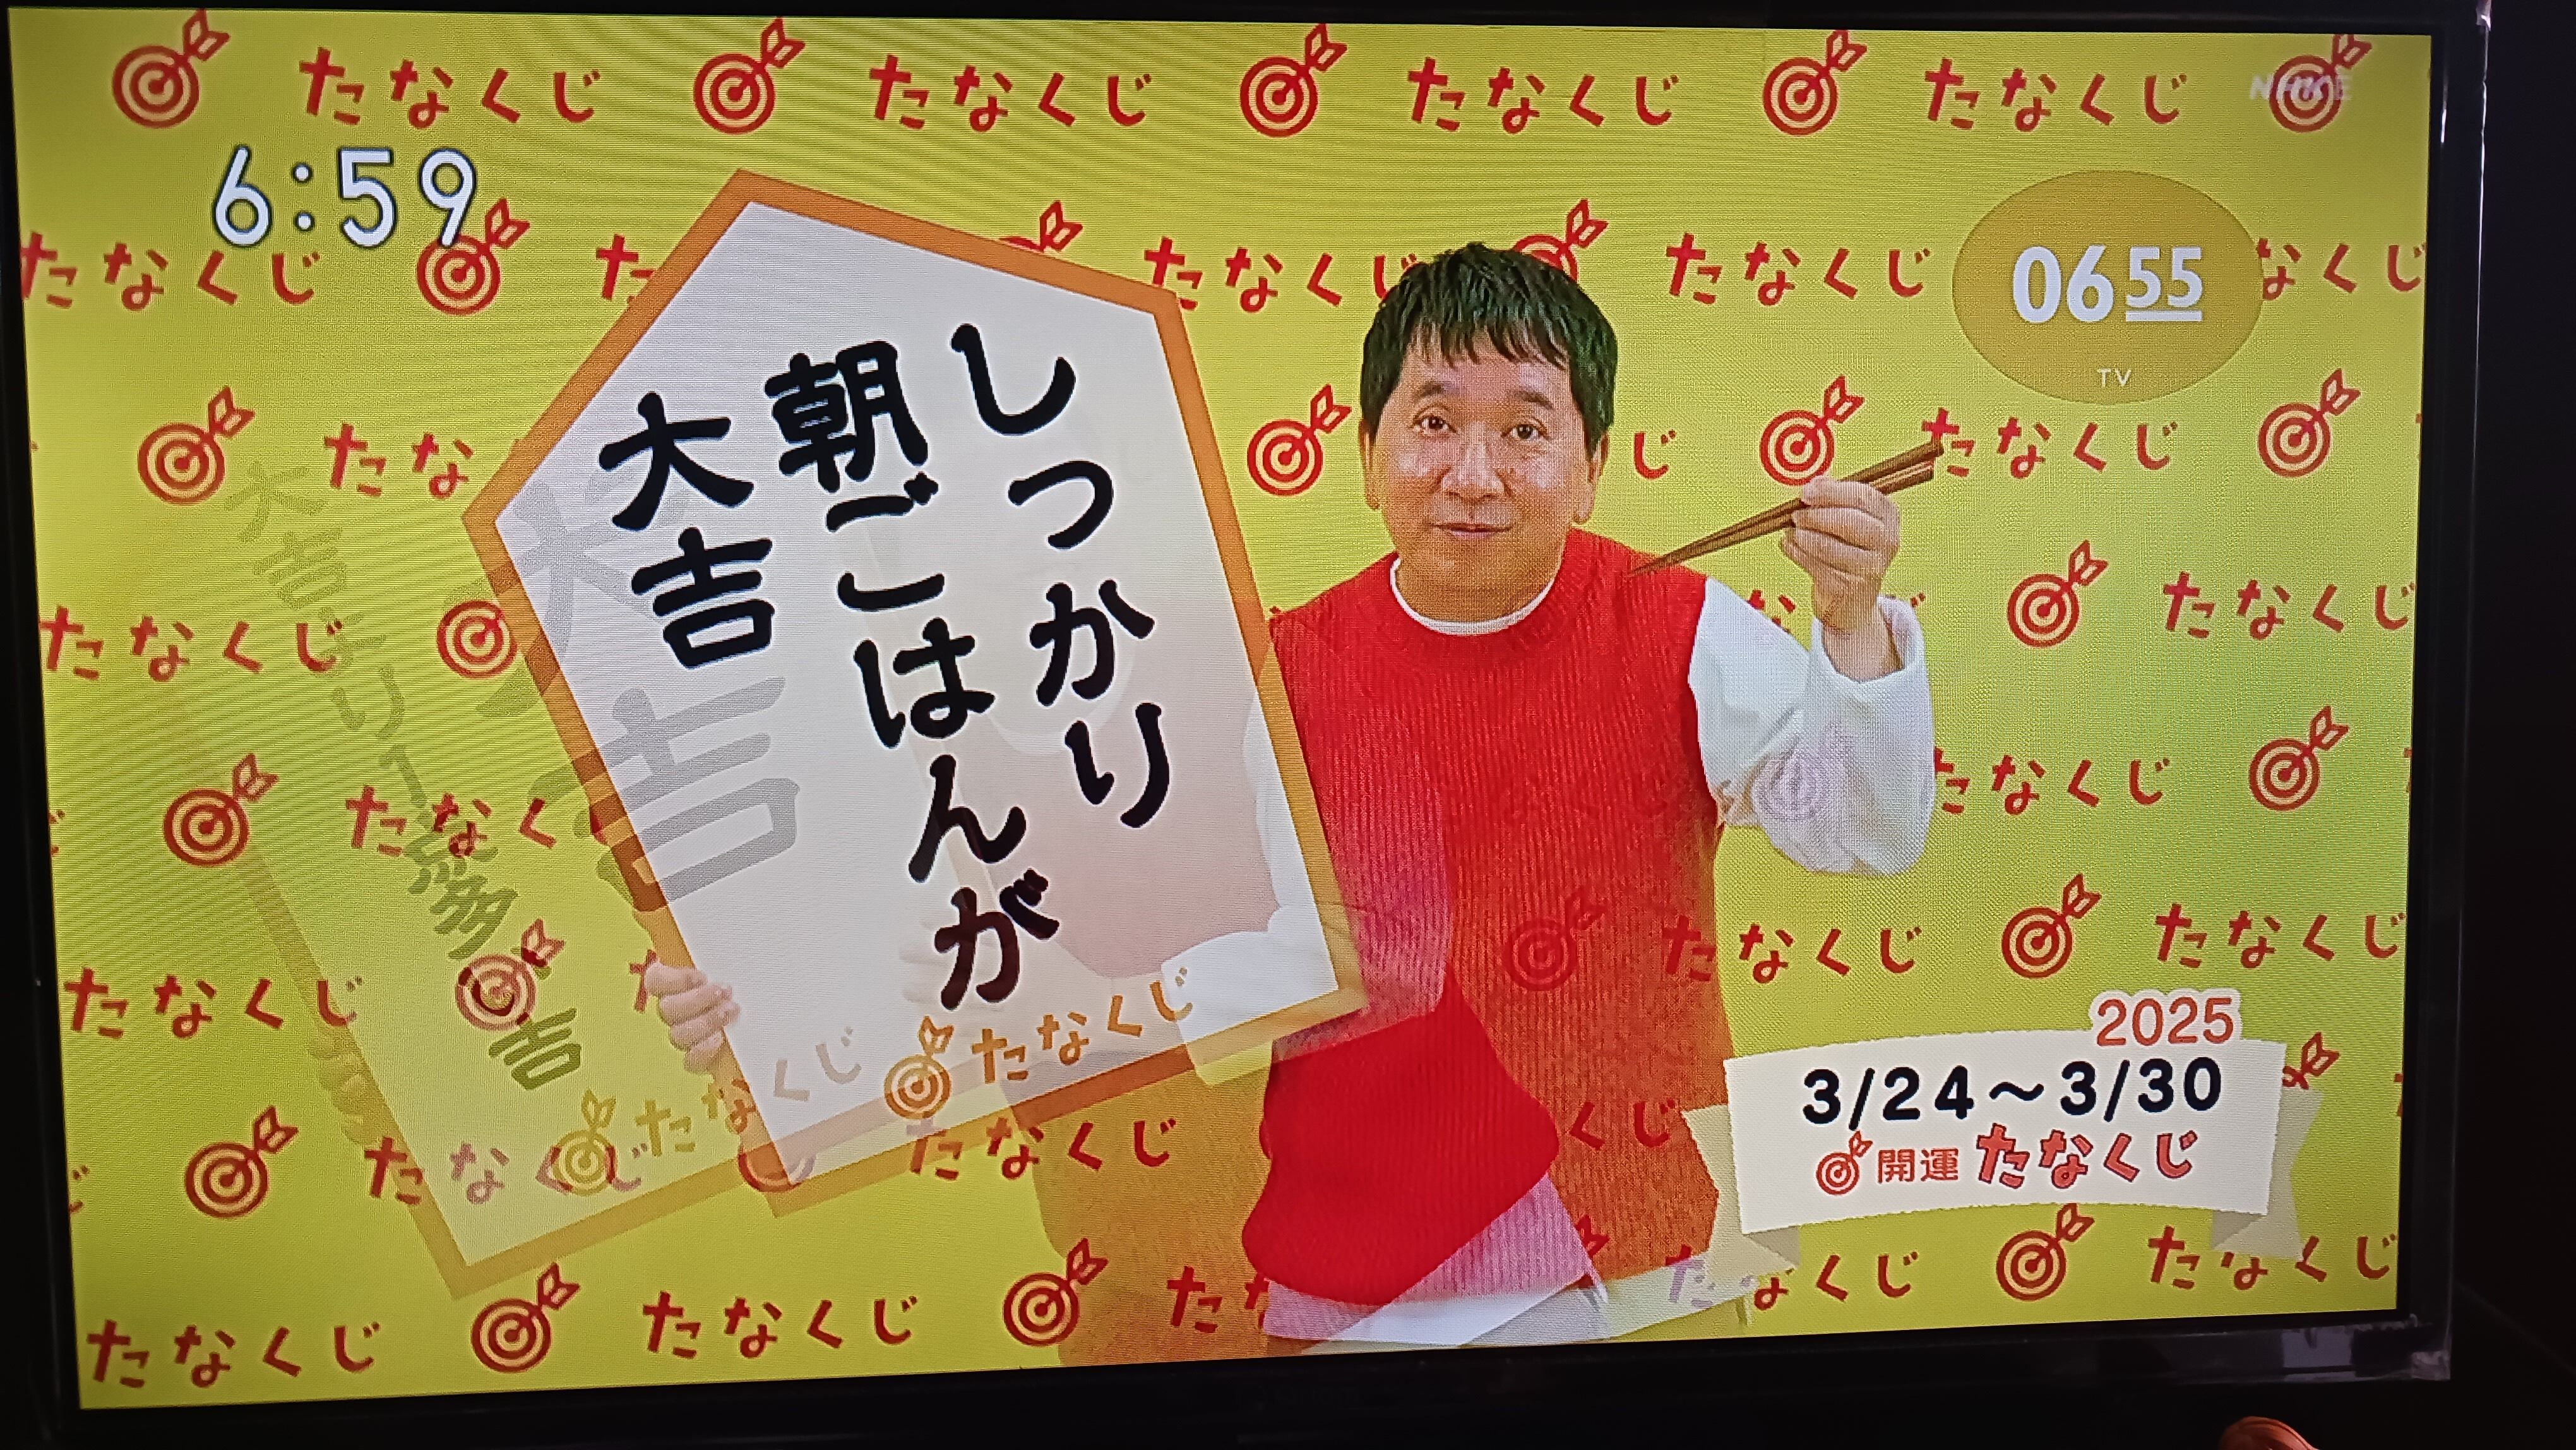 6:59
NHKE
0655
TV
しっかり
朝ごはんが
大吉
たなくじ
大吉
大吉より
吉
たなくじ
2025
3/24～3/30
開運 たなくじ
たなくじ たなくじ たなくじ たなくじ
たなくじ た たなくじ たなくじ なくじ
たな じ たなくじ
たなくじ たなくじ
たなく たなくじ
たなくじ たなくじ たなくじ
たなくじ たなくじ くじ
たなくじ たなくじ たな なくじ たなくじ